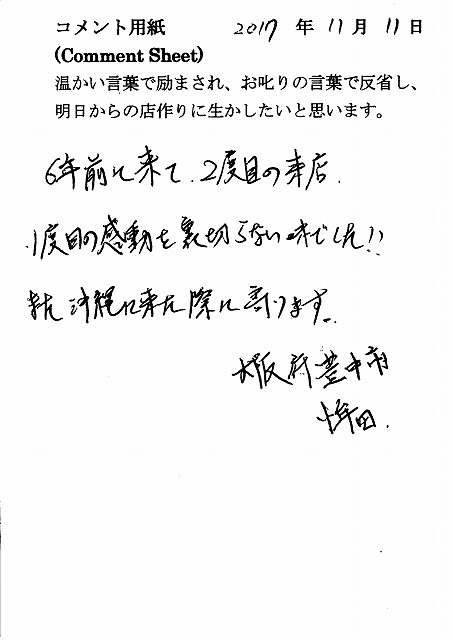 コメント用紙 2017 年 11 月 11 日
(Comment Sheet)
温かい言葉で励まされ、お叱りの言葉で反省し、
明日からの店作りに生かしたいと思います。
6年前に来て、2度目の来店.
1度目の感動を裏切らない味でした!!
また沖縄に来た際に寄ります。
大阪府豊中市
田.